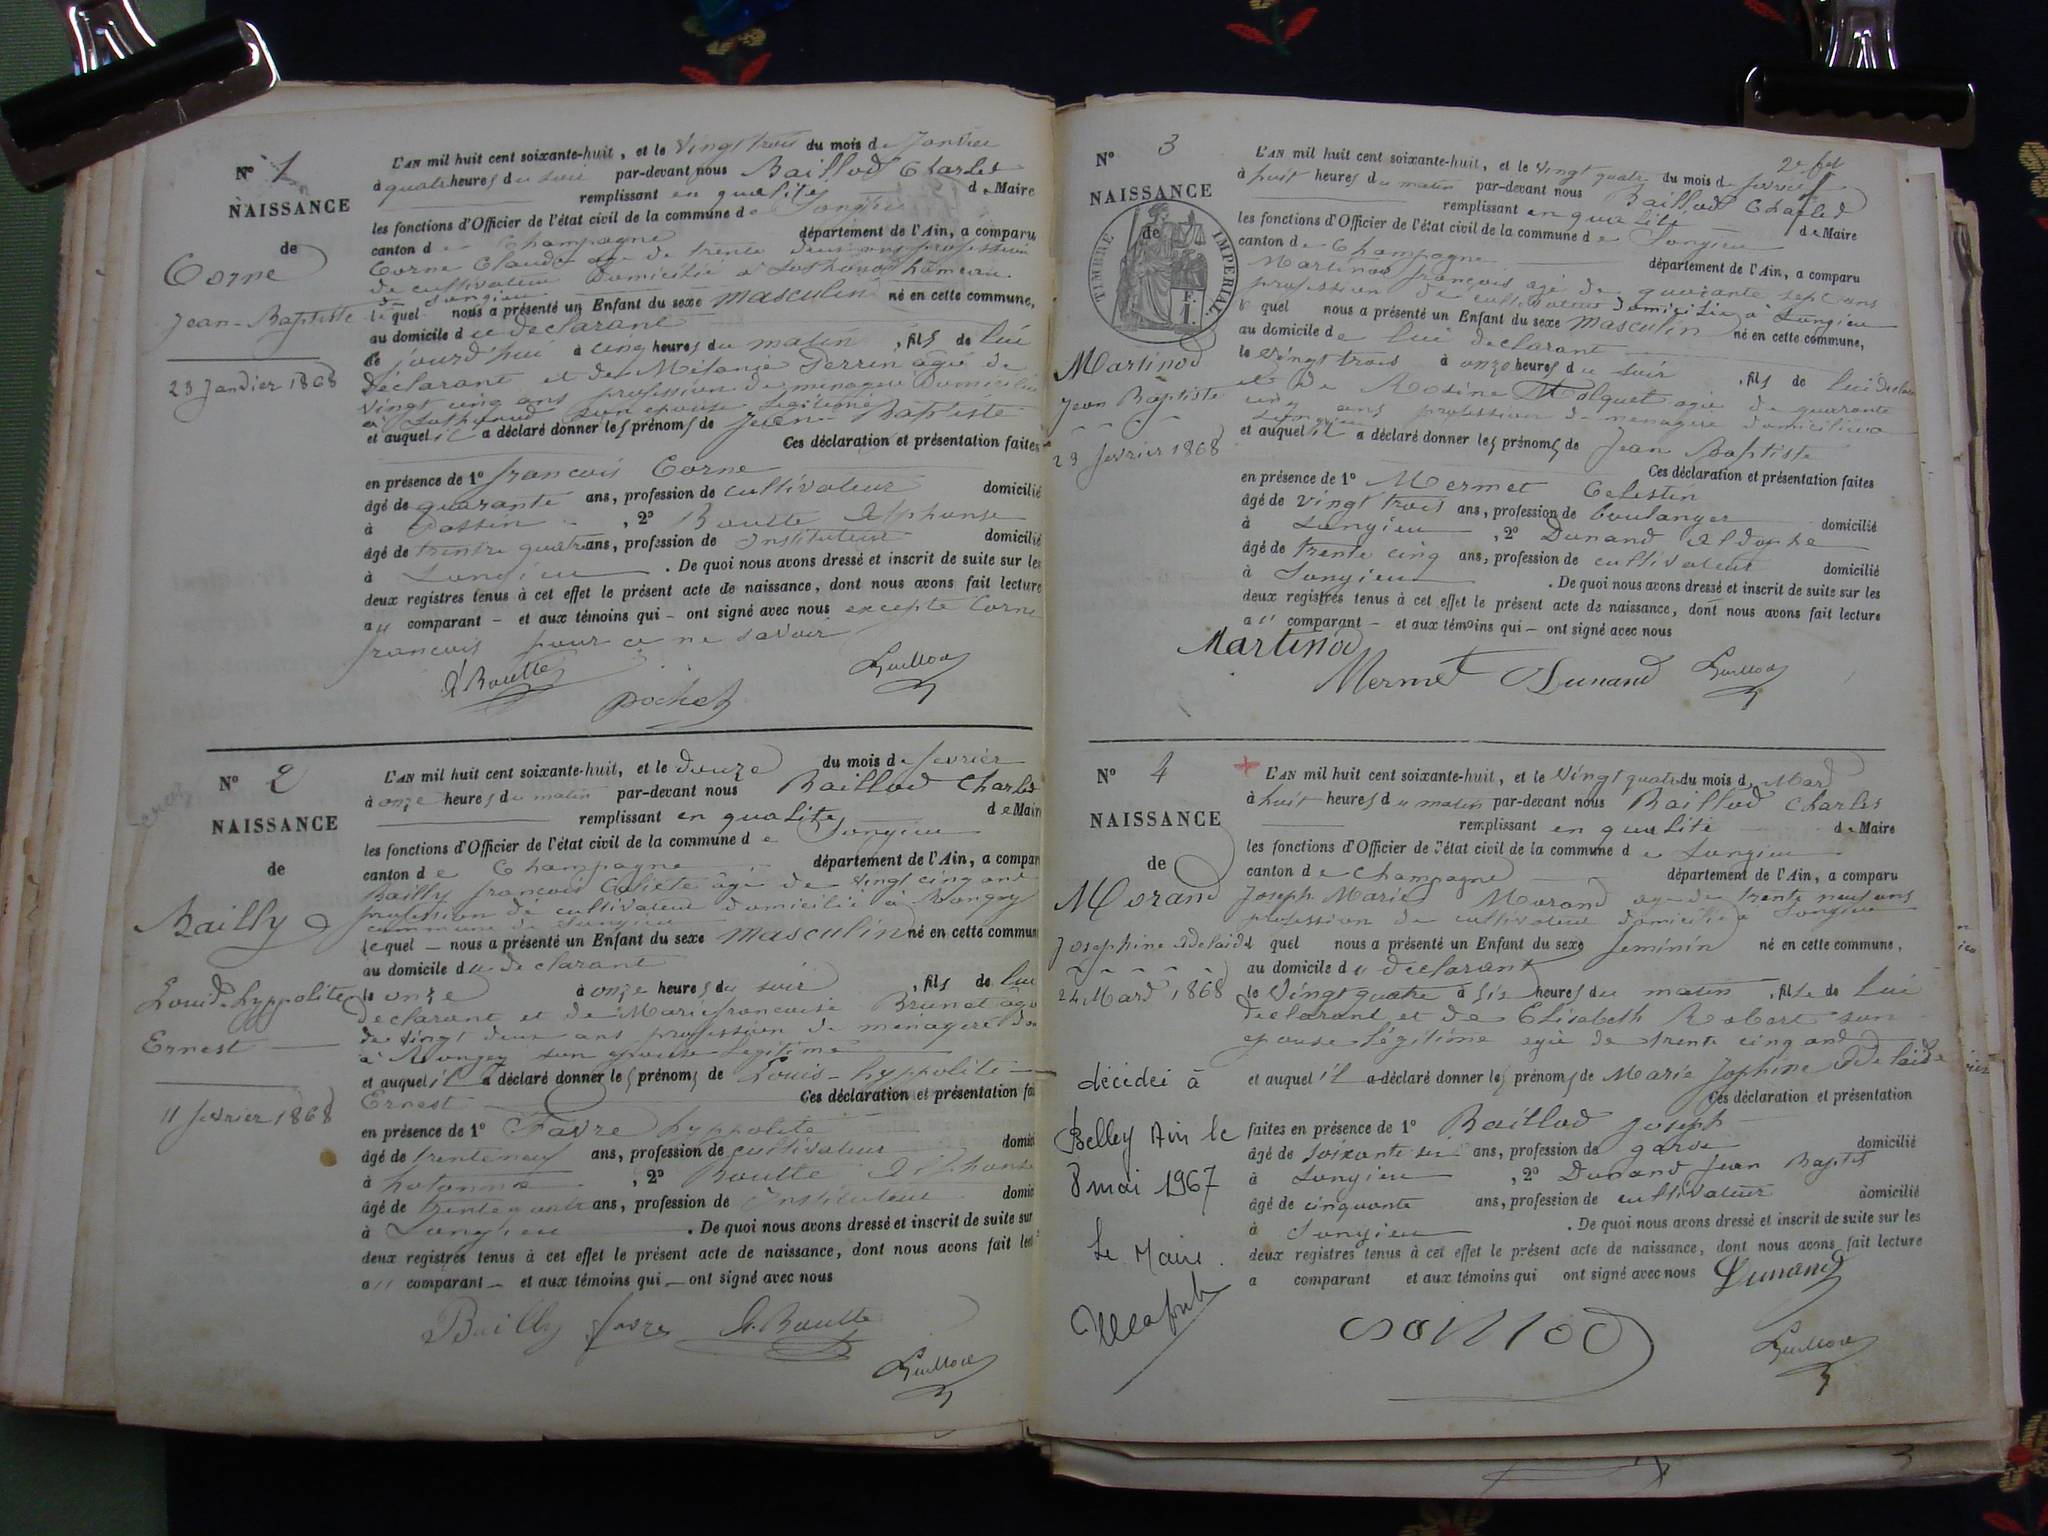 N° 1
NAISSANCE
de
Corne
Jean-Baptiste
23 Janvier 1868
L'AN mil huit cent soixante-huit, et le Vingt trois du mois de Janvier
à quatre heures du soir par-devant nous Baillod Charles
remplissant en qualité de Maire
les fonctions d'Officier de l'état civil de la commune de Songieu
canton de Champagne département de l'Ain, a comparu
Corne Claude age de trente deux ans profession
de cultivateur Domicilié à hameau
de Songieu
lequel nous a présenté un Enfant du sexe masculin né en cette commune,
au domicile du declarant
de jourd'hui à cinq heures du matin, fils de lui
déclarant et de Mélanie Perrin agée de
vingt cinq ans profession de menagere Domiciliée
à son epouse legitime
et auquel il a déclaré donner les prénoms de Jean Baptiste
Ces déclaration et présentation faites
en présence de 1° françois Corne
âgé de quarante ans, profession de cultivateur domicilié
à Passin, 2° Boutte Alphonse
âgé de trente quatre ans, profession de Instituteur domicilié
à Songieu. De quoi nous avons dressé et inscrit de suite sur les
deux registres tenus à cet effet le présent acte de naissance, dont nous avons fait lecture
au comparant - et aux témoins qui - ont signé avec nous excepté Corne
francois pour ce ne savoir
A Boutte Baillod
pochet
N° 2
NAISSANCE
de
Bailly
Louis hyppolite
Ernest
11 fevrier 1868
L'AN mil huit cent soixante-huit, et le douze du mois de fevrier
à onze heures du matin par-devant nous Baillod Charles
remplissant en qualité de Maire
les fonctions d'Officier de l'état civil de la commune de Songieu
canton de Champagne département de l'Ain, a comparu
Bailly francois âgé de vingt cinq ans
profession de cultivateur domicilié à
commune de Songieu
lequel - nous a présenté un Enfant du sexe masculin né en cette commune
au domicile du declarant
le onze à onze heures du soir, fils de lui
declarant et de Marie francoise Brunet agée
de vingt deux ans profession de menagere
à son epouse legitime
et auquel il a déclaré donner les prénoms de Louis-hyppolite-
Ernest Ces déclaration et présentation
en présence de 1° Favre hyppolite
âgé de trente neuf ans, profession de cultivateur
à hotonne, 2° Boutte Alphonse
âgé de trente quatre ans, profession de Instituteur
à Songieu. De quoi nous avons dressé et inscrit de suite sur
deux registres tenus à cet effet le présent acte de naissance, dont nous avons fait
au comparant - et aux témoins qui - ont signé avec nous
Bailly favre A. Boutte
Baillod
N° 3
NAISSANCE
de
TIMBRE IMPERIAL
Martinod
Jean Baptiste
23 fevrier 1868
L'AN mil huit cent soixante-huit, et le vingt quatre du mois de fevrier
à huit heures du matin par-devant nous Baillod Charles
remplissant en qualité de Maire
les fonctions d'Officier de l'état civil de la commune de Songieu
canton de Champagne département de l'Ain, a comparu
Martinod françois agé de quarante sept ans
profession de cultivateur domicilié à Songieu
lequel nous a présenté un Enfant du sexe masculin né en cette commune,
au domicile de lui declarant
le vingt trois à onze heures du soir, fils de lui declarant
et de Rosine agée de quarante
cinq ans profession de menagere domiciliée a
Songieu
et auquel il a déclaré donner les prénoms de Jean Baptiste
Ces déclaration et présentation faites
en présence de 1° Mermet Celestin
âgé de vingt trois ans, profession de boulanger domicilié
à Songieu, 2° Dunand
âgé de trente cinq ans, profession de cultivateur domicilié
à Songieu. De quoi nous avons dressé et inscrit de suite sur les
deux registres tenus à cet effet le présent acte de naissance, dont nous avons fait lecture
au comparant - et aux témoins qui - ont signé avec nous
Martinod
Mermet Dunand Baillod
N° 4
NAISSANCE
de
Morand
Josephine Adelaide
24 Mars 1868
décédée à
Belley Ain le
8 mai 1967
Le Maire.
L'AN mil huit cent soixante-huit, et le vingt quatre du mois de Mars
à huit heures du matin par-devant nous Baillod Charles
remplissant en qualité de Maire
les fonctions d'Officier de l'état civil de la commune de Songieu
canton de Champagne département de l'Ain, a comparu
Joseph Marie Morand age de trente neuf ans
profession de cultivateur domicilié a Songieu
lequel nous a présenté un Enfant du sexe feminin né en cette commune,
au domicile du declarant
le vingt quatre à six heures du matin, fille de lui
declarant et de Elisabeth Robert son
epouse légitime agée de trente cinq ans
et auquel il a déclaré donner les prénoms de Marie Jophine Adelaide
Ces déclaration et présentation
faites en présence de 1° Baillod Joseph
âgé de soixante six ans, profession de garde domicilié
à Songieu, 2° Dunand Jean Baptis
âgé de cinquante ans, profession de cultivateur domicilié
à Songieu. De quoi nous avons dressé et inscrit de suite sur les
deux registres tenus à cet effet le présent acte de naissance, dont nous avons fait lecture
a comparant et aux témoins qui ont signé avec nous Dunand
Baillod